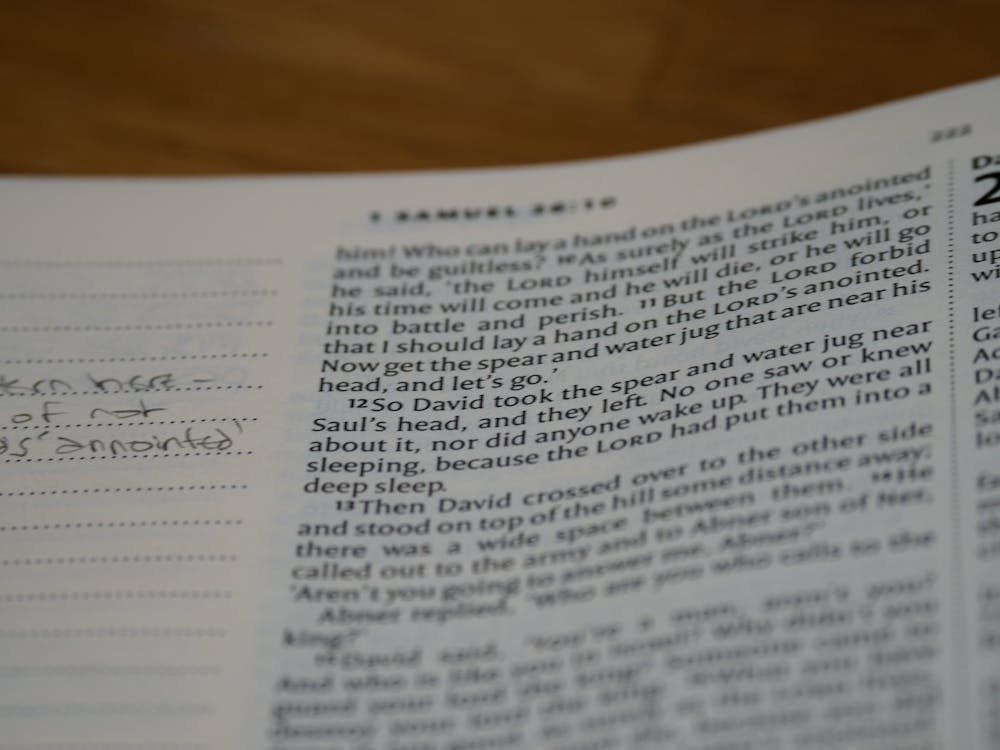 222
1 SAMUEL 26:10
here –
of not
as 'annointed'
him! Who can lay a hand on the LORD's anointed
and be guiltless? 10As surely as the LORD lives,'
he said, 'the LORD himself will strike him, or
his time will come and he will die, or he will go
into battle and perish. 11But the LORD forbid
that I should lay a hand on the LORD's anointed.
Now get the spear and water jug that are near his
head, and let's go.'
12So David took the spear and water jug near
Saul's head, and they left. No one saw or knew
about it, nor did anyone wake up. They were all
sleeping, because the LORD had put them into a
deep sleep.
13Then David crossed over to the other side
and stood on top of the hill some distance away;
there was a wide space between them. 14He
called out to the army and to Abner son of Ner,
'Aren't you going to answer me, Abner?'
Abner replied, 'Who are you who calls to the
king?'
15David said, 'You're a man, aren't you?
And who is like you in Israel? Why didn't you
guard your lord the king? Someone came to
destroy your lord the king. 16What you have
Da
2
ha
to
up
wi
let
Ga
Ac
Da
Ab
Sa